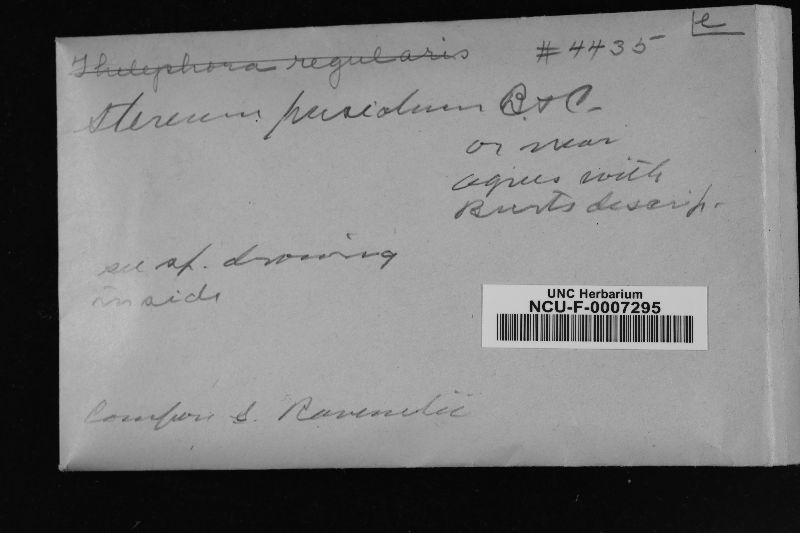 e
Thelephora regularis #4435
Stereum pusiolum B. & C.
or near
agrees with
Burts descrip.
see sp. drawing
inside
UNC Herbarium
NCU-F-0007295
Compare S. Ravenelii